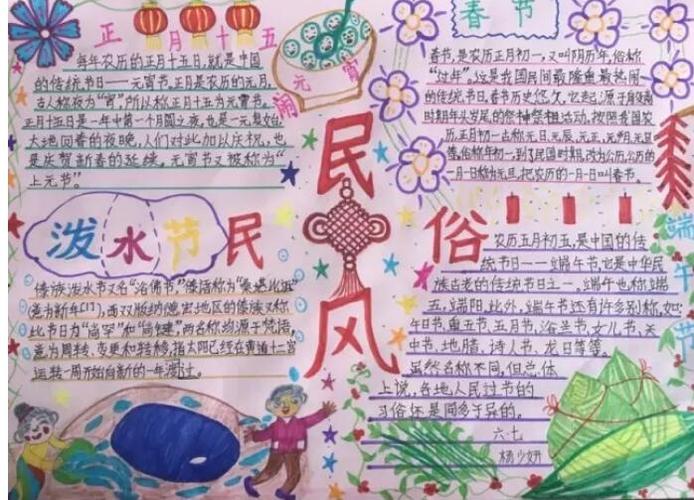 正月十五
每年农历的正月十五日,就是中国
的传统节日——元宵节。正月是农历的元月,
古人称夜为“宵”,所以称正月十五为元宵节。
正月十五日是一年中第一个月圆之夜,也是一元复始,
大地回春的夜晚,人们对此加以庆祝,也
是庆贺新春的延续。元宵节又被称为“
上元节”。
闹元宵
春节
春节,是农历正月初一,又叫阴历年,俗称
“过年”。这是我国民间最隆重最热闹
的传统节日。春节历史悠久,它起源于殷商
时期年头岁尾的祭神祭祖活动。按照我国农
历,正月初一古称元日、元辰、元正、元朔、元旦
等,俗称年初一,到了民国时期,改为公历,公历的
一月一日称为元旦,把农历的一月一日叫春节。
民
风
民
俗
泼水节
傣族泼水节又名“浴佛节”,傣语称为“桑堪比迈”
意为新年,西双版纳德宏地区的傣族又称
此节日为“尚罕”和“尚键”,两名称均源于梵语,
意为周转、变更和转移,指太阳已经在黄道十二宫
运转一周开始向新的一年过
端午节
农历五月初五,是中国的传
统节日——端午节,它是中华民
族古老的传统节日之一。端午也称端
五,端阳。此外,端午节还有许多别称,如
午日节、重五节、五月节、浴兰节、女儿节、天
中节、地腊、诗人节、龙日等等。
虽然名称不同,但总体
上说,各地人民过节的
习俗还是同多于异的。
六·七
杨少妍